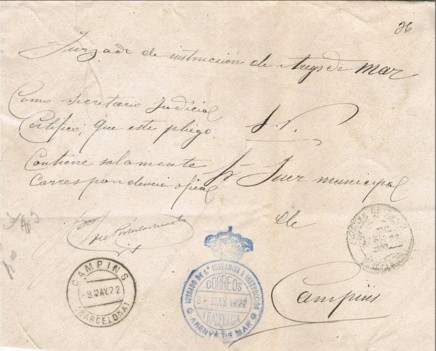 36
Juzgado de instrucción de Arenys de Mar
Como secretario Judicial
Certifico: que este pliego
Contiene solamente
Correspondencia oficial
S. N.
Sr Juez municipal
de
Campins
CAMPINS
(BARCELONA)
JUZGADO DE 1ª INSTANCIA E INSTRUCCION
CORREOS
FRANQUICIA
ARENYS DE MAR